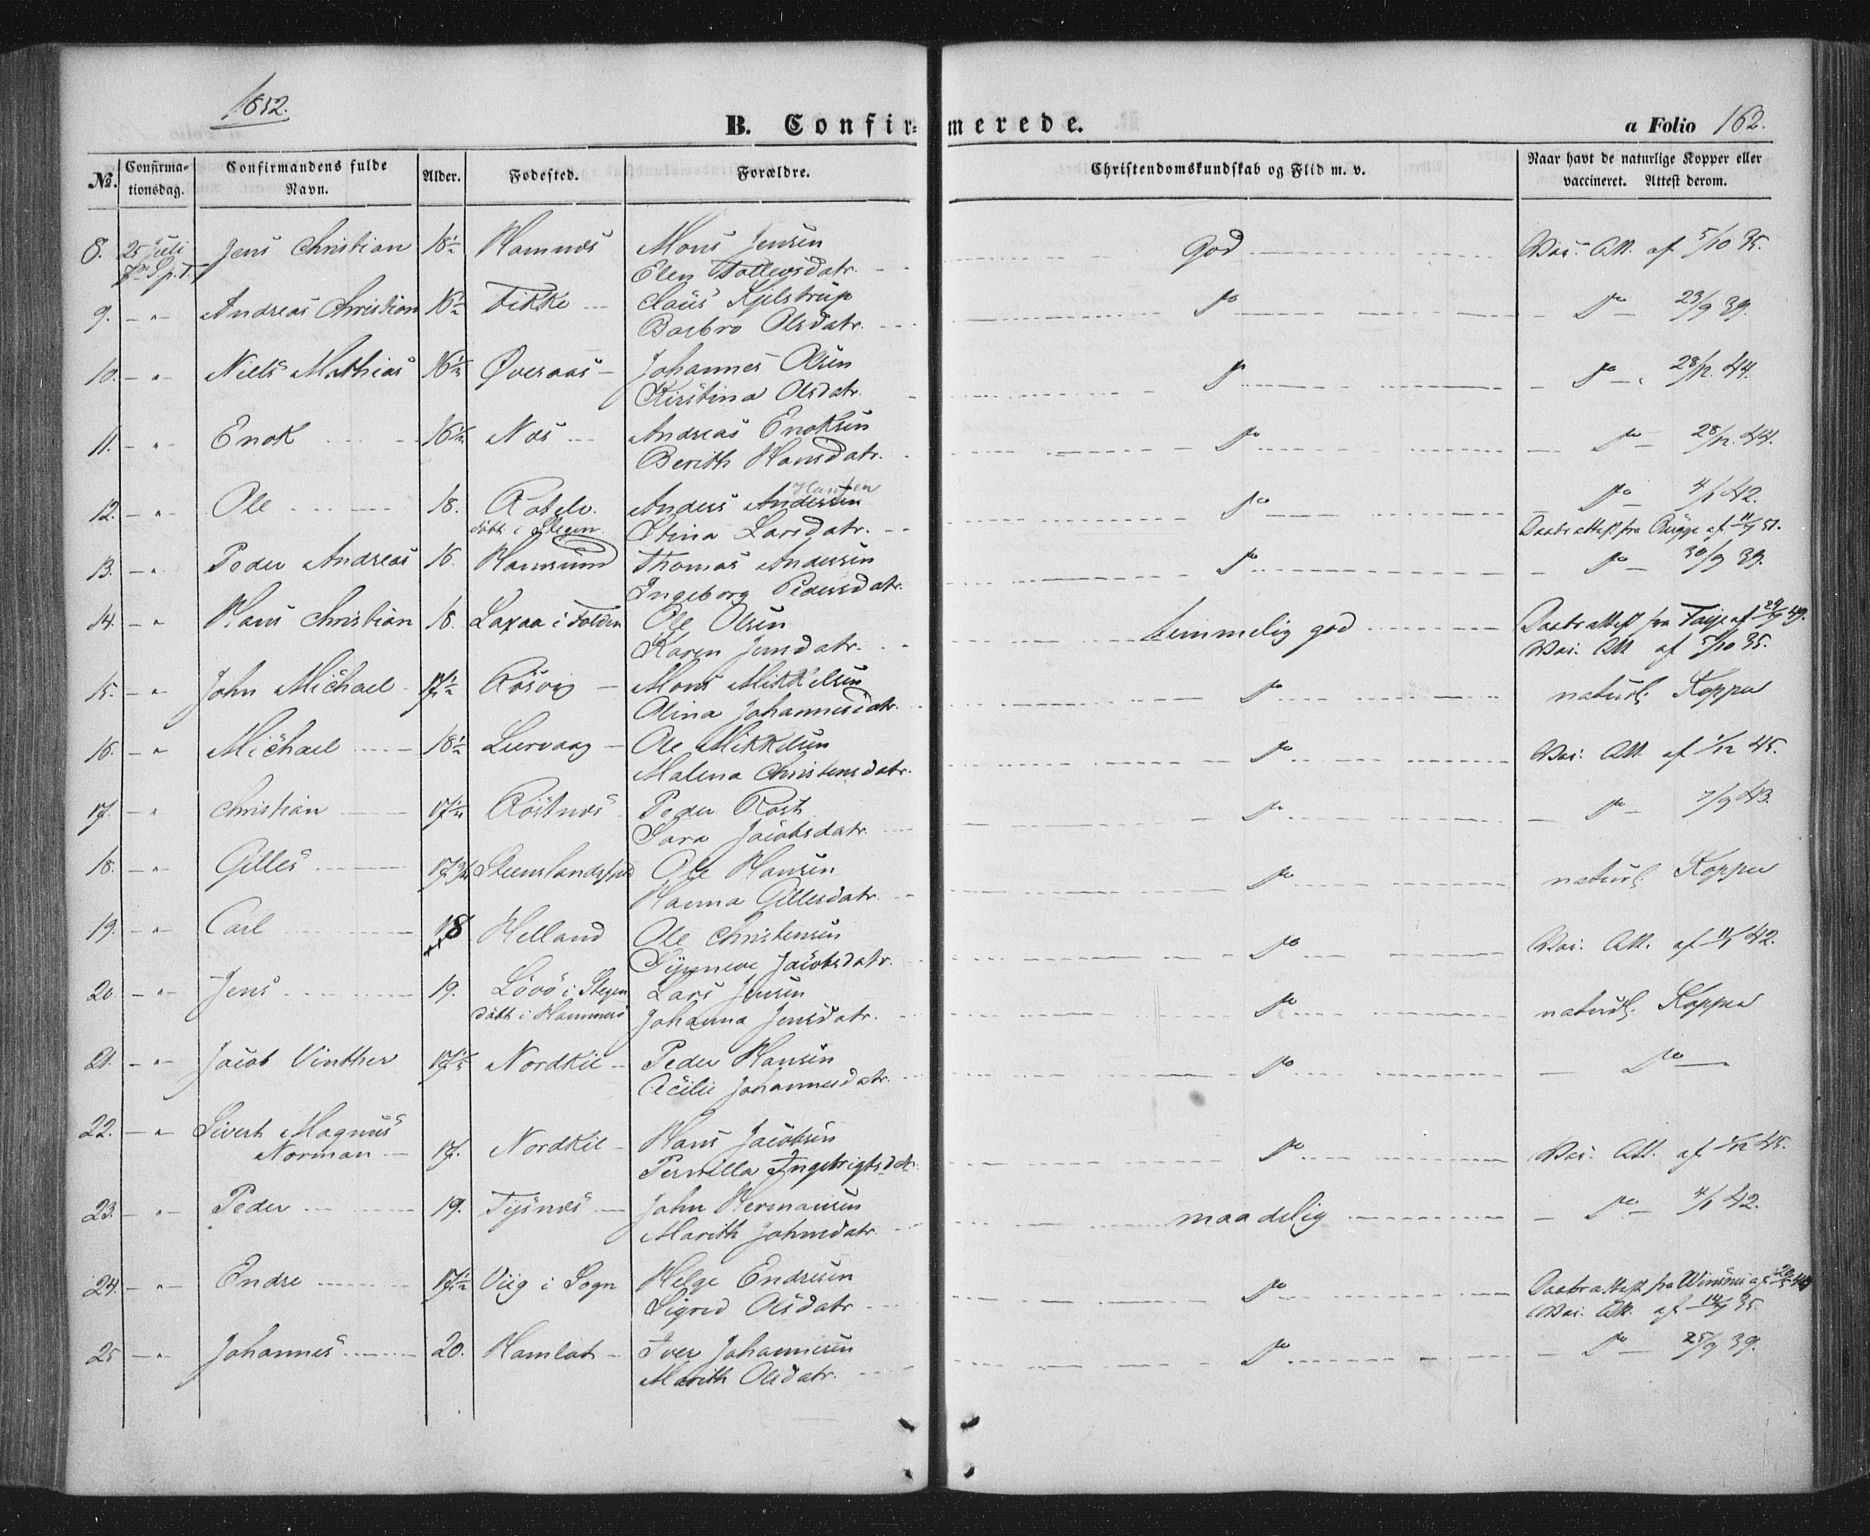 1852.
B. Confirmerede.
a Folio 162.
№.
Confirmationsdag.
Confirmandens fulde Navn.
Alder.
Fødested.
Forældre.
Christendomskundskab og Flid m. v.
Naar havt de naturlige Kopper eller vaccineret. Attest derom.
8. 25 Juli Jens Christian 18½ Hamnæs Mons Jensen God Vac. Att. af 5/10 35.
7de S. p. T. Elen
9. – " Andreas Christian 16½ Fikke Claus Kjelstrup do do 23/9 39.
Barbro Olsdatr.
10. – " Niels Mathias 16½ Øveraas Johannes Olsen do do 28/12 44.
Kirstina Olsdatr.
11. – " Enok 16½ Næs Andreas Enoksen do do 28/12 44.
Berith Hansdatr.
Hansen
12. – " Ole 18. Anders Andersen do do 4/1 42.
døbt i Stegen Stina Larsdatr. Daabsattest fra af 11/9 51.
13. – " Peder Andreas 16. Hamsund Thomas Andersen do do 30/9 39.
Ingeborg Pedersdatr.
14. – " Hans Christian 18. Laxaa i Folden Ole Olsen temmelig god Daabsattest fra af 49.
Karen Jensdatr. Vac. Att. af 5/10 35.
15. – " John Michael 17½ Røsvig Mons Mikkelsen do naturl. Kopper
Olina Johannesdatr.
16. – " Michael 18½ Leervaag Ole Mikkelsen do Vac. Att. af 1/12 45.
Malena Christensdatr.
17. – " Christian 17½ Røstnæs Peder Rost do do 7/9 43.
Sara Jacobsdatr.
18. – " Gilles 17¾ Ole Hansen do naturl. Kopper
Hanna Gillesdatr.
19. – " Carl 18 Helland Ole Christensen do Vac. Att. af 11/1 42.
Synneve Jacobsdatr.
20. – " Jens 19. Løvø i Stegen Lars Jensen do naturl. Kopper
døbt i Hammerø Johanna Jensdatr.
21. – " Jacob Vinther 17½ Nordkil Peder Hansen do do
Cecilie Johannesdatr.
22. – " Sivert Magnus Hans Jacobsen
Norman 17. Nordkil Pernilla Ingebrigtsdatr. do Vac. Att. af 1/12 45.
23. – " Peder 19. Tysnæs John Hermansen maadelig do 4/1 42.
Marith Johnsdatr.
24. – " Endre 17½ Viig i Sogn Helge Endresen do Daabsattest fra
Sigrid Olsdatr Vac. Att. af 35.
25 – " Johannes 20. Hamlot Iver Johannesen do do 25/9 39.
Marith Olsdatr.